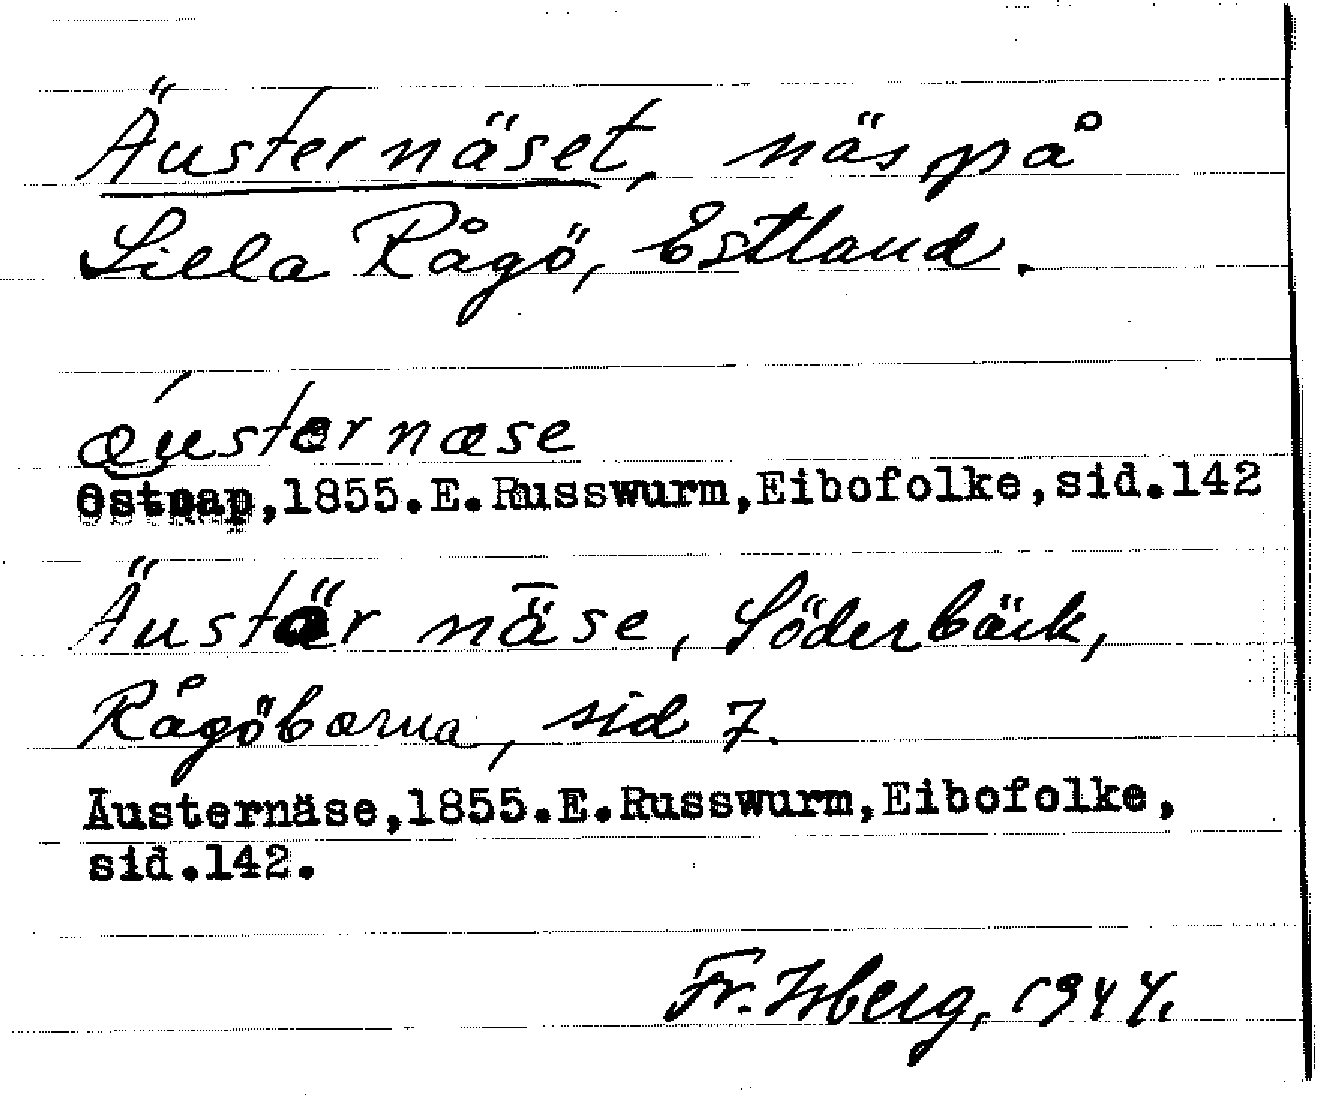 Äusternäset, näs på
Lilla Rågö, Estland.
ǽusternæse
Östnap,1855.E.Russwurm,Eibofolke,sid.142
Äustär nǟse, Söderbäck,
Rågöborna, sid 7.
Äusternäse,1855.E.Russwurm,Eibofolke,
sid.142.
Fr. Isberg, 1944.